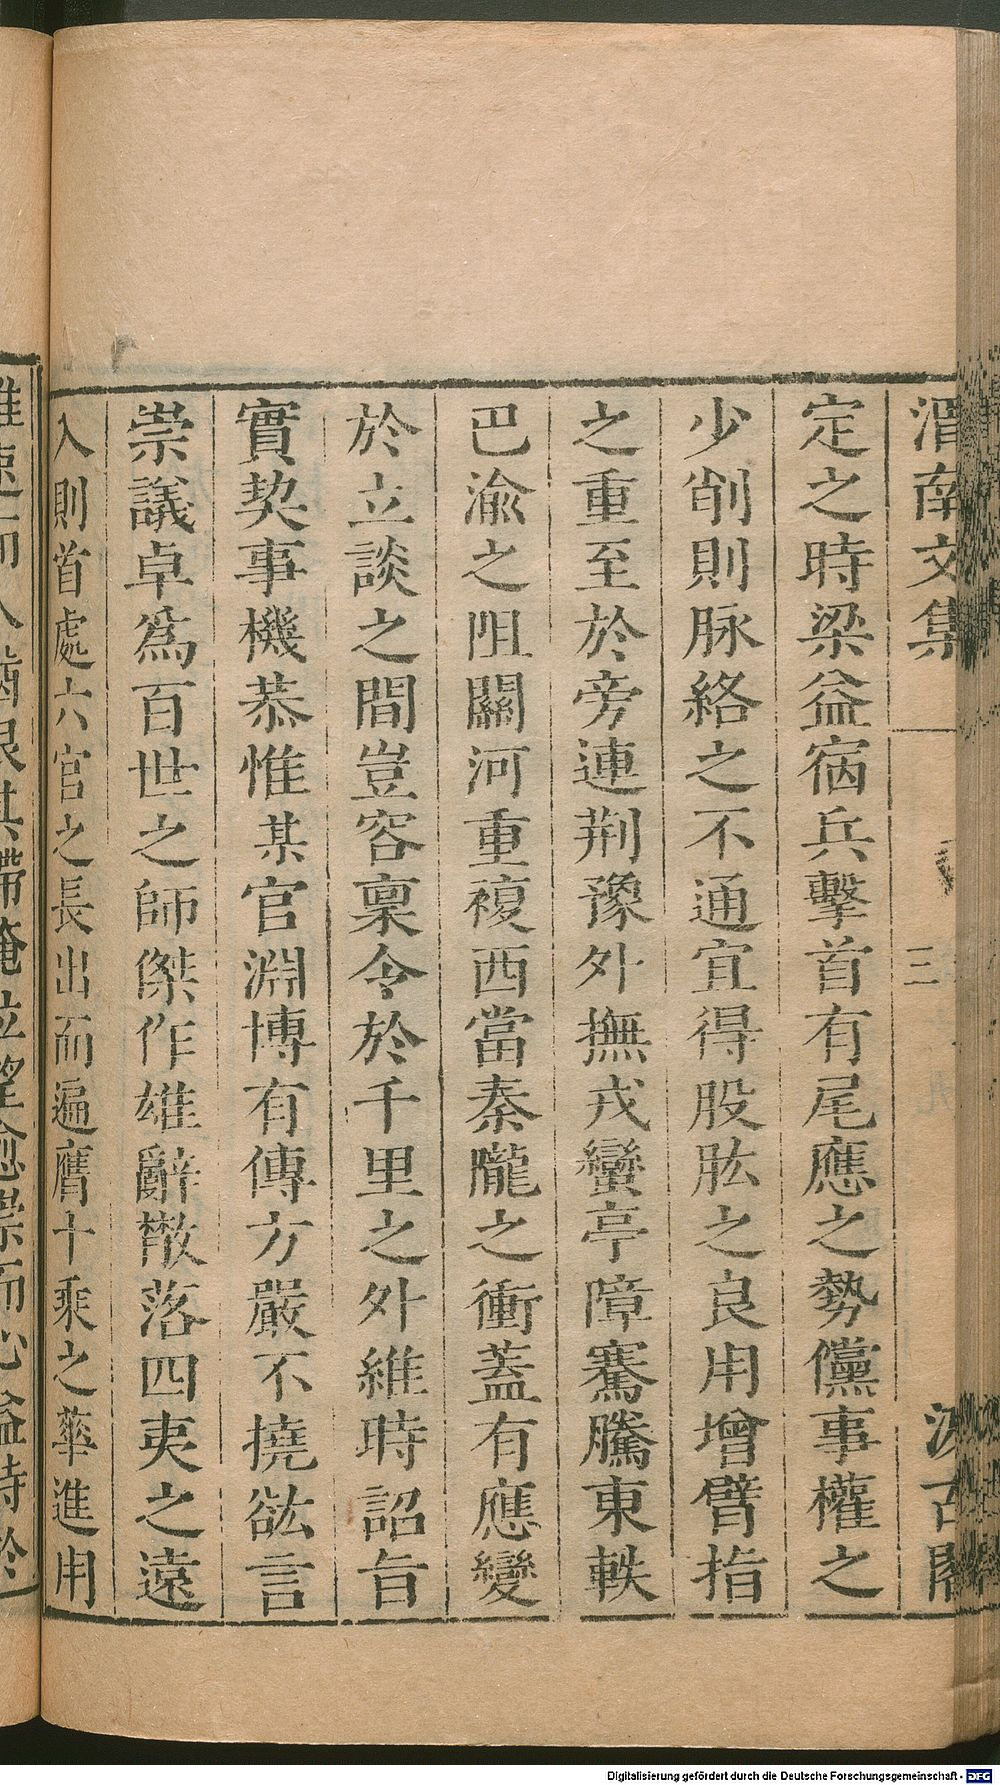 渭南文集 三 汲古閣
定之時梁益宿兵擊首有尾應之勢儻事權之
少削則脉絡之不通宜得股肱之良用增臂指
之重至於旁連荆豫外撫戎蠻亭障騫騰東軼
巴渝之阻關河重複西當秦隴之衝蓋有應變
於立談之間豈容稟令於千里之外維時詔旨
實契事機恭惟某官淵博有傳方嚴不撓紘言
崇議卓爲百世之師傑作雄辭散落四夷之遠
入則首處六官之長出而遍膺十乘之華進用
雖速而人猶恨其滯庵位望愈崇而心益待於
Digitalisierung gefördert durch die Deutsche Forschungsgemeinschaft - DFG